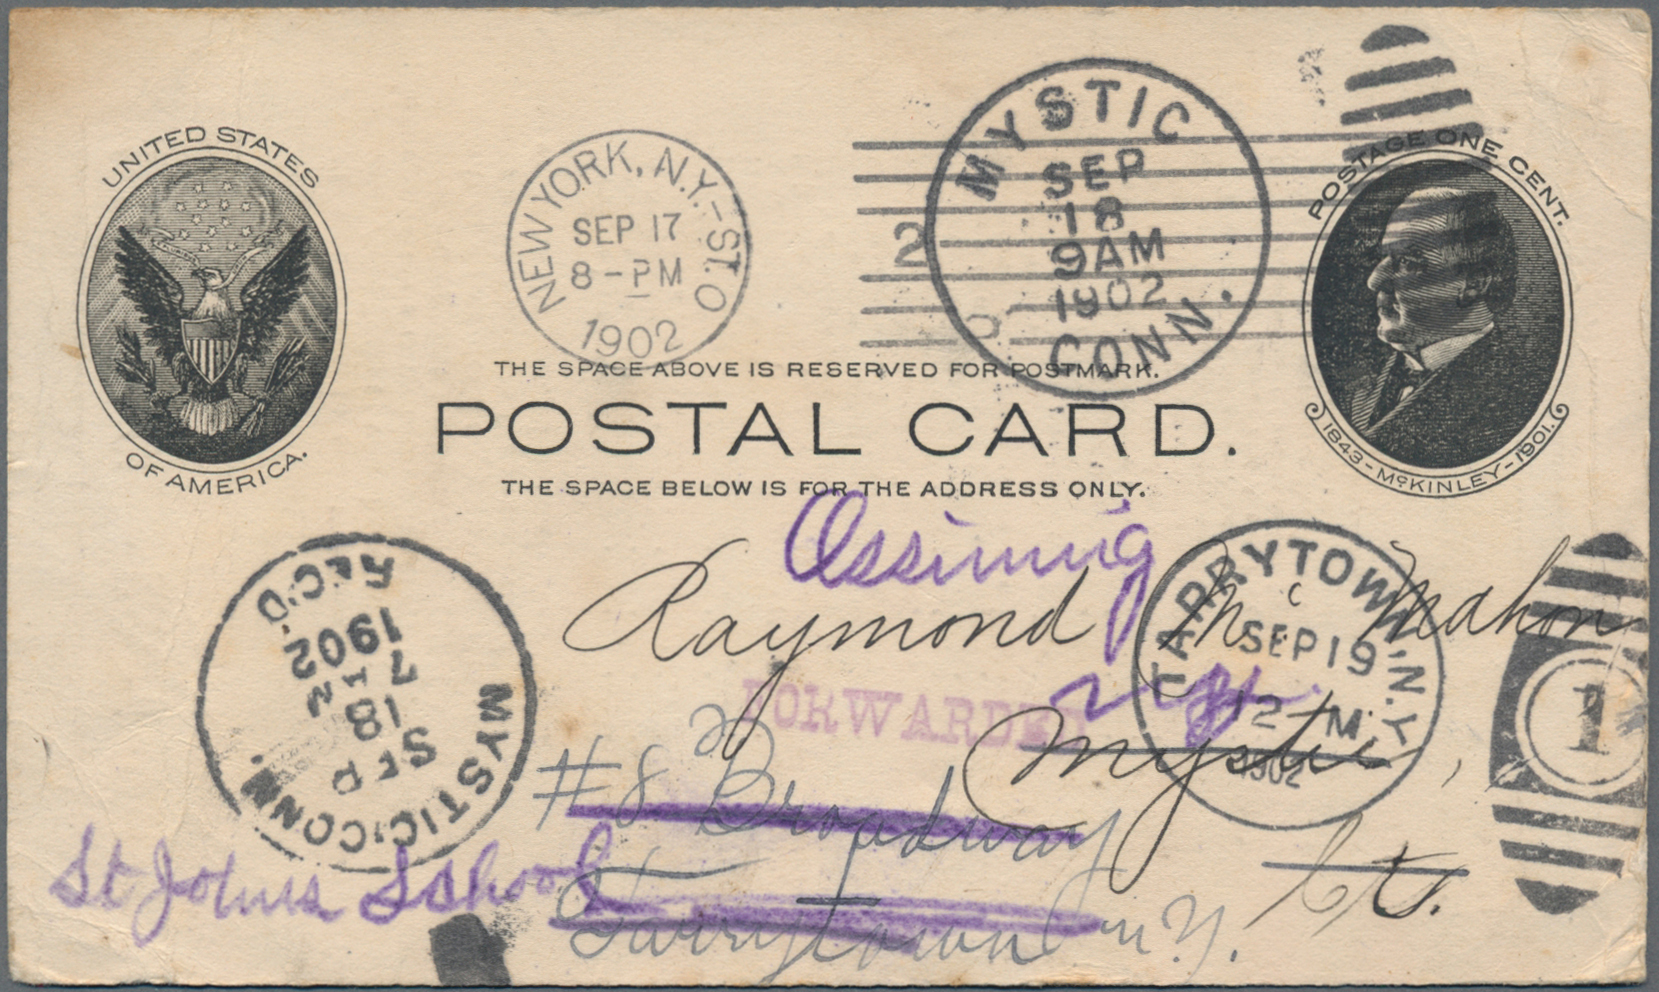 UNITED STATES
OF AMERICA.
NEW YORK, N.Y.-ST. O
SEP 17
8-PM
1902
2
MYSTIC
SEP
18
9AM
1902
CONN.
POSTAGE ONE CENT.
1843-McKINLEY-1901.
THE SPACE ABOVE IS RESERVED FOR POSTMARK.
POSTAL CARD.
THE SPACE BELOW IS FOR THE ADDRESS ONLY.
Ossining
Raymond Mc Mahon
N.Y.
FORWARDED
Mystic,
Ct.
#8 Broadway
Tarrytown N.Y.
St Johns School
TARRYTOWN, N.Y.
SEP 19
12-M
1902
1
MYSTIC, CONN.
SEP
18
7 AM
1902
REC'D.